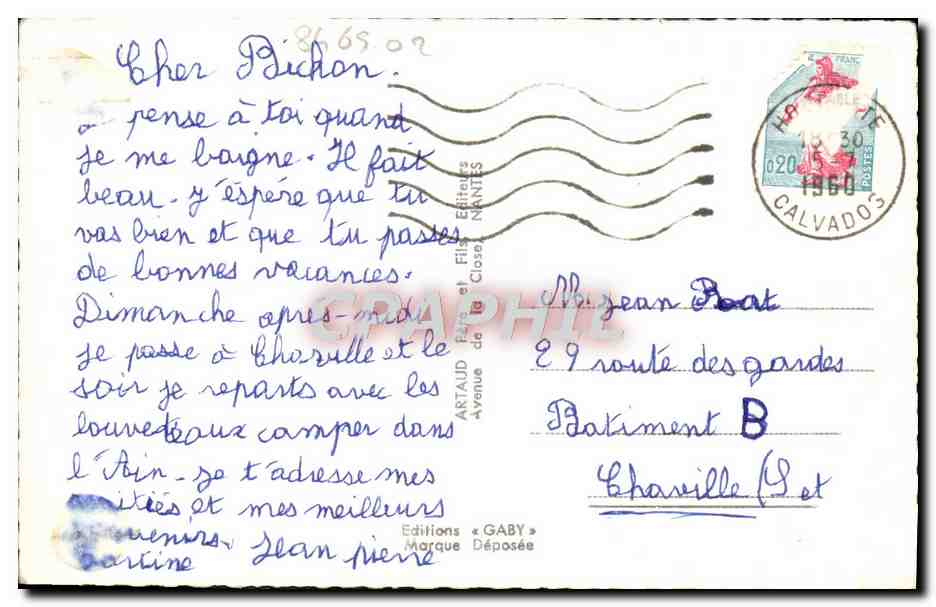 8465 02
Cher Bichon.
pense à toi quand
je me baigne. Il fait
beau. J'éspère que tu
vas bien et que tu passes
de bonnes vacances.
Dimanche après-midi
je passe à Chaville et le
soir je reparts avec les
louveteaux camper dans
l'Ain. Je t'adresse mes
et mes meilleurs
Jean pierre
ARTAUD Père et Fils Editeurs
Avenue de la Close, NANTES
Editions « GABY »
Marque Déposée
FRANC
0,20
POSTES
18 30
1960
CALVADOS
M. Jean
29 route des gardes
Batiment B
Chaville (S et
CPARPHIL